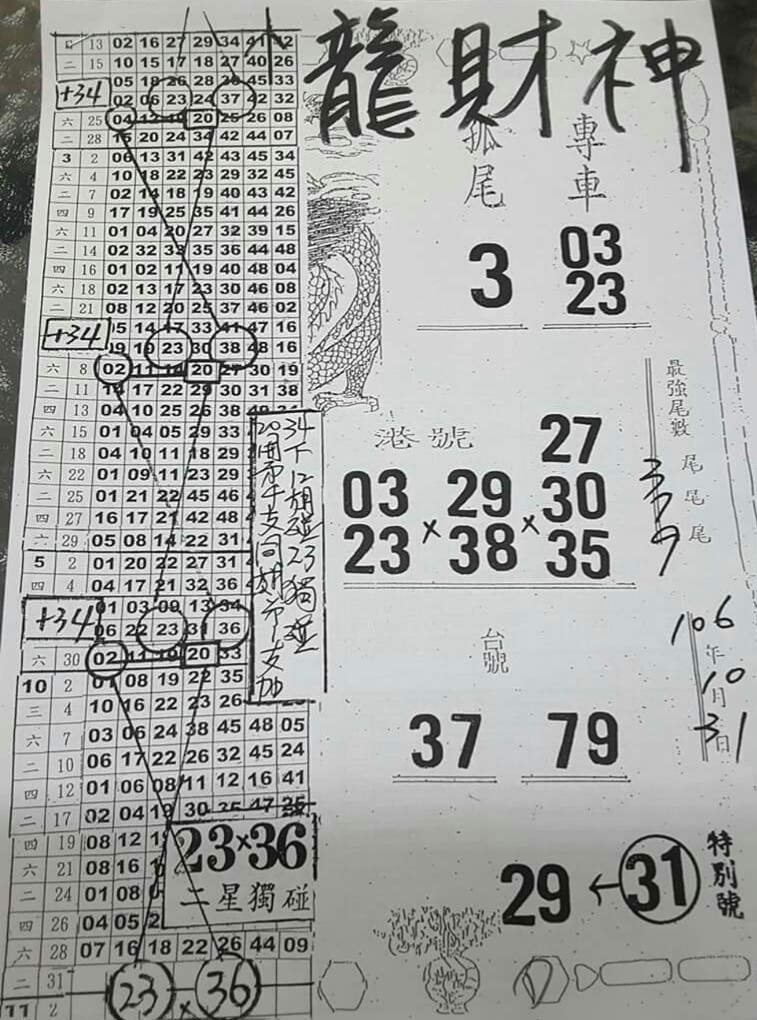 龍財神
13 02 16 27 29 34 41 42
二 15 10 15 17 18 27 40 26
05 18 26 28 45 33
+34
02 06 23 24 37 42 32
六 25 04 12 20 25 26 08
二 28 20 24 34 42 44 07
3 2 06 13 31 42 43 45 34
六 4 10 18 22 23 29 32 45
二 7 02 14 18 19 40 43 42
四 9 17 19 25 35 41 44 26
六 11 01 04 20 27 32 39 15
二 14 02 32 33 35 36 44 48
四 16 01 02 11 19 40 48 04
六 18 02 13 17 23 30 46 08
二 21 08 12 20 25 37 46 02
+34
05 14 17 33 41 47 16
09 23 30 38 48 16
六 8 02 11 20 27 30 19
二 11 14 17 22 29 30 31 38
四 13 04 10 25 26 38
六 15 01 04 05 29 33
二 18 04 10 11 18 29
六 22 01 09 11 23 29
二 25 01 21 22 45 46
四 27 16 17 21 42 48
六 29 05 08 14 22 31
5 2 01 20 22 27 31
四 4 04 17 21 32 36
01 03 09 13 34
+34
06 22 23 31 36
六 30 02 11 19 20 33
10 2 01 08 19 22 35
三 4 10 16 22 23 26
六 7 03 06 24 38 45 48 05
二 10 06 17 22 26 32 45 24
四 12 01 06 08 11 12 16 41
二 17 02 04 19 30 47
四 19 08 12
六 21 08 16
二 24 01 08
四 26 04 05
六 28 07 16 18 22 26 44 09
二 31
11 2
23×36
二星獨碰
23 × 36
34下12期碰23獨碰
孤尾
3
專車
03
23
港號
03 29 27
23 × 38 × 30
35
最強尾數
3尾
7尾
9尾
台號
37 79
106年10月31日
特別號
29 ← 31